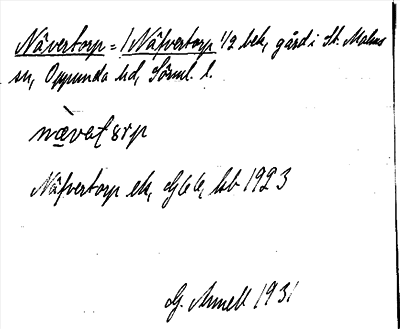 Nävertorp = /Näfvertorp 1/2 bek, gård i St. Malms
sn, Oppunda hd, Sörml. l.
nævet8rp
Näfvertorp ek, Gj66, kb 1923
G. 1931